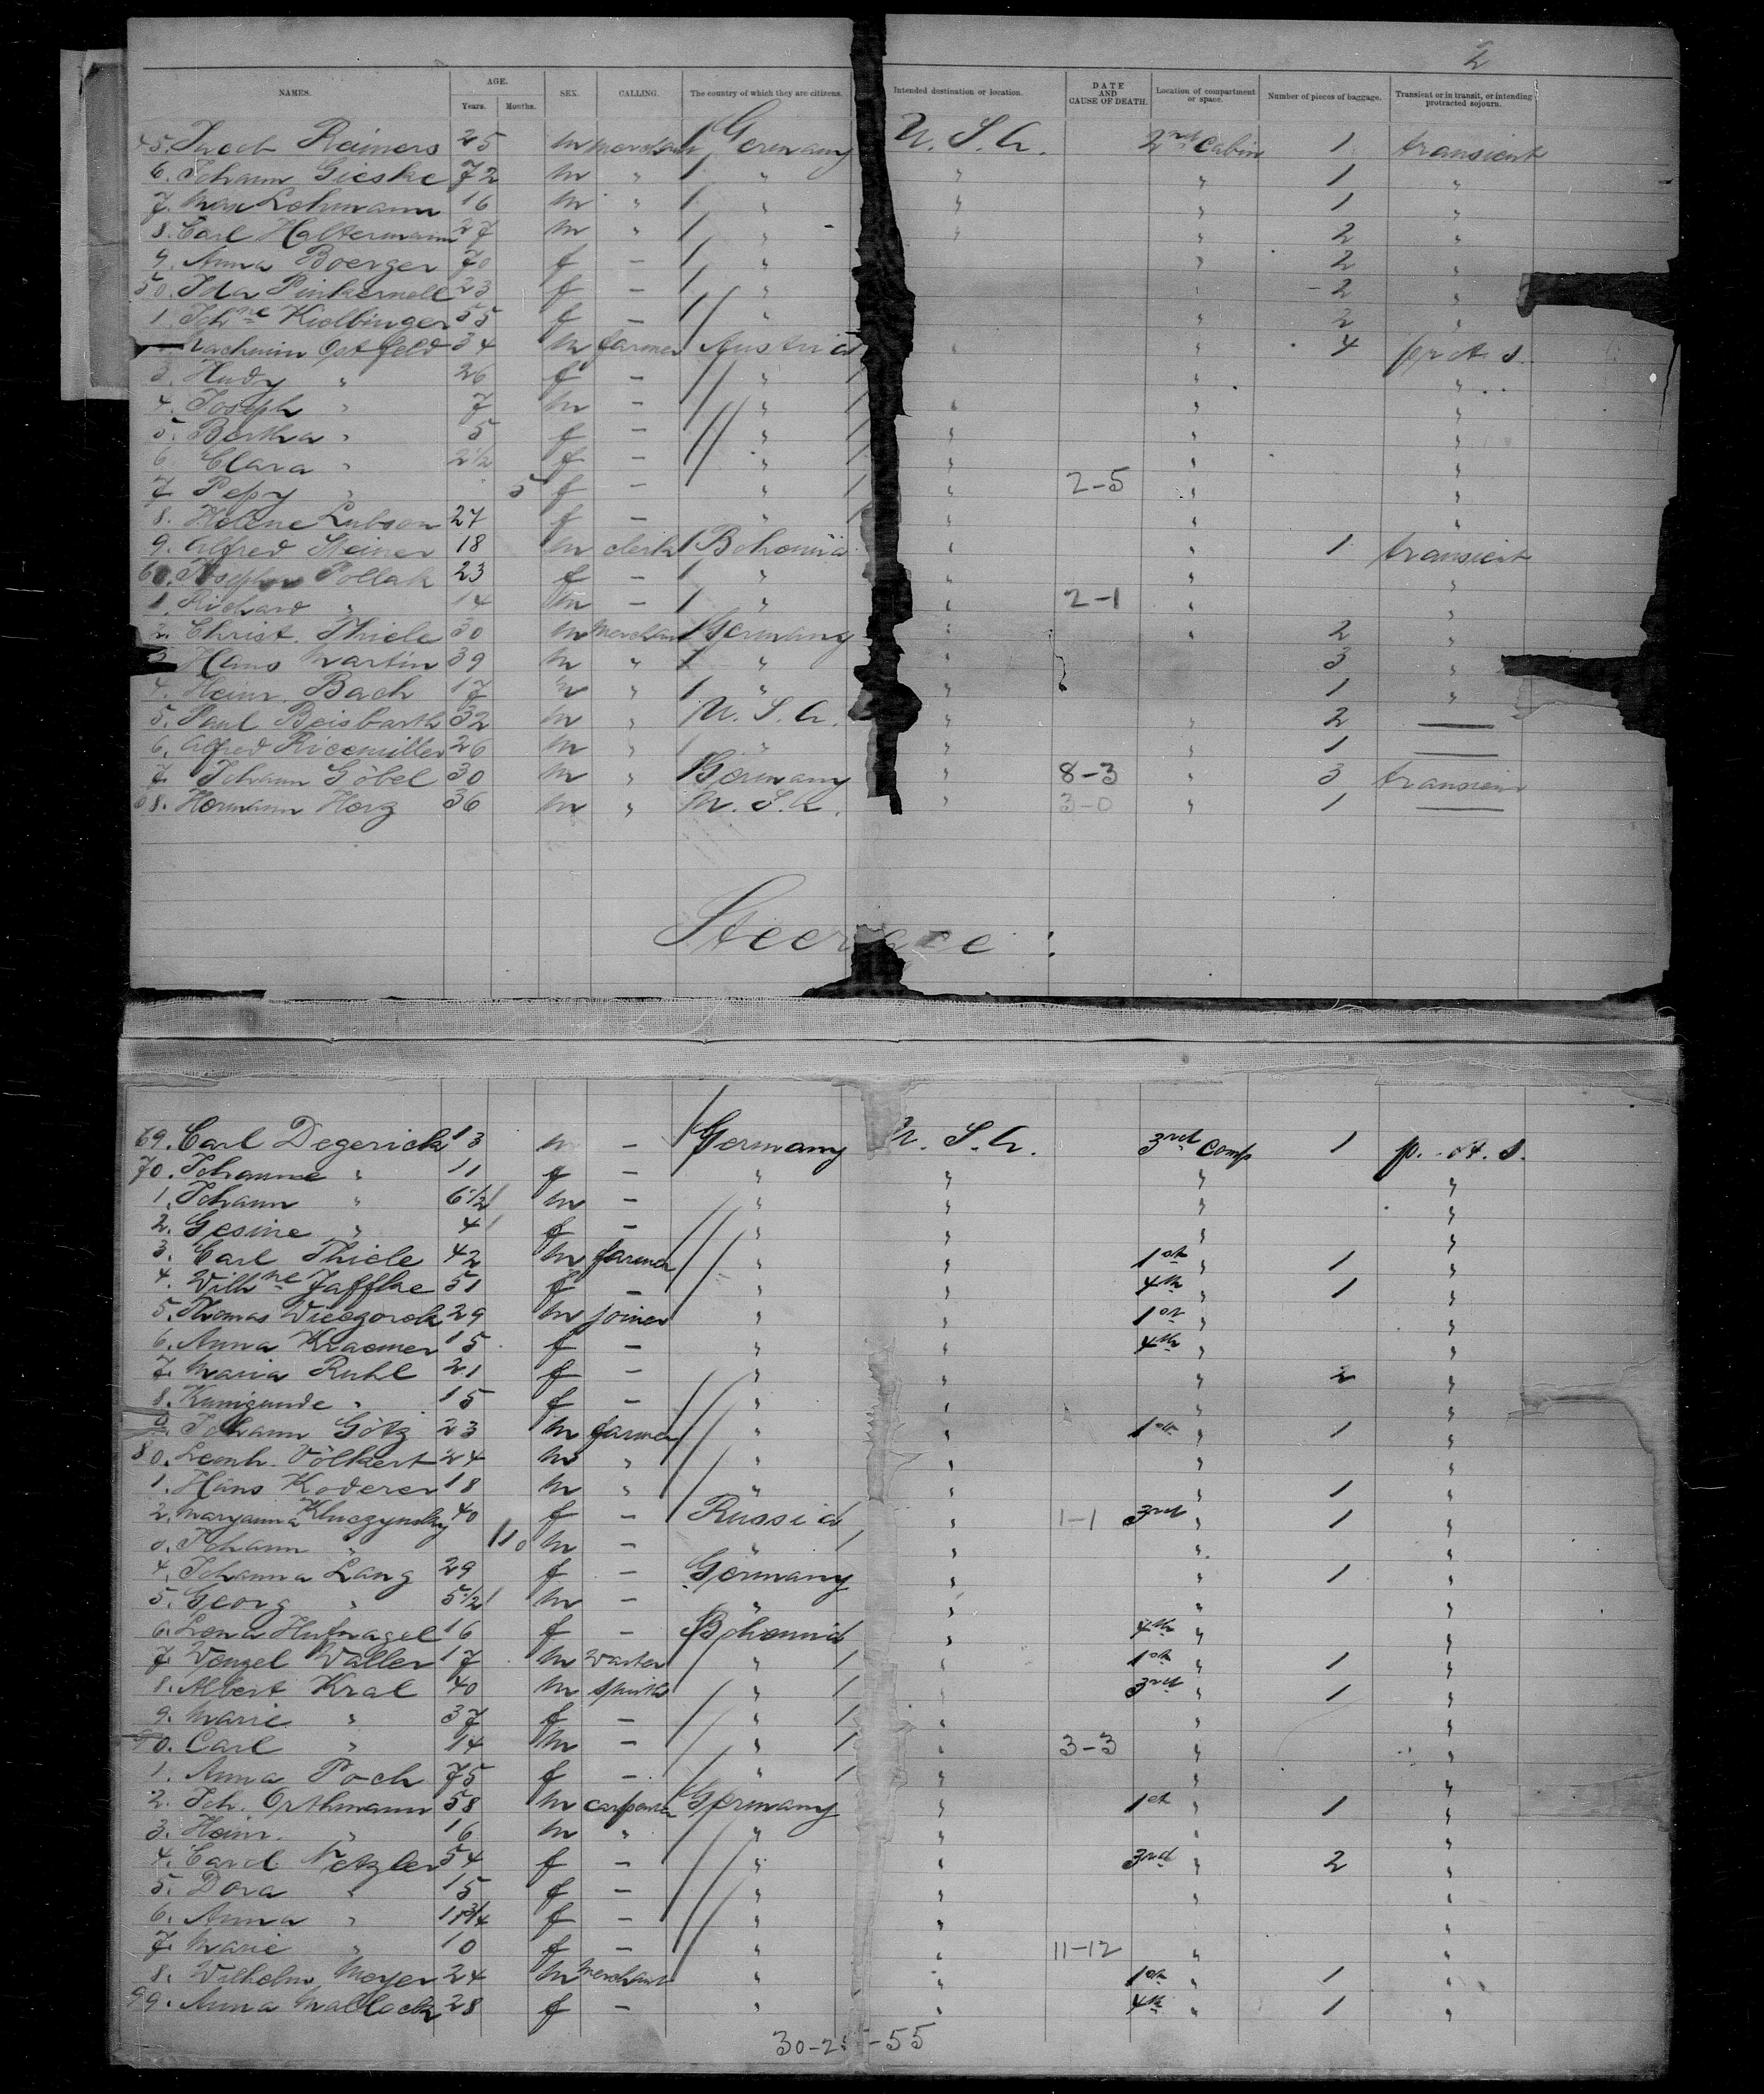 2
NAMES. AGE. Years. Months. SEX. CALLING. The country of which they are citizens. Intended destination or location. DATE AND CAUSE OF DEATH. Location of compartment or space. Number of pieces of baggage. Transient or in transit, or intending protracted sojourn.
45. Jacob Reimers 25 m merchant Germany U. S. A. 2nd Cabin 1 transient
6. Johann Gieske 72 m " " " " 1 "
7. Max Lohmann 16 m " " " " 1 "
8. Carl Haltermann 27 m " " " " 2 "
9. Anna Boerger 70 f – " " 2 "
50. Ida Pinkernell 23 f – " " 2 "
1. Joh.ne Kiolbinger 55 f – " " 2 "
Nachmin Ostfeld 34 m farmer Austria " " 4 pr. A. S.
3. Hudy " 26 f – " " "
4. Joseph " 7 m – " " " "
5. Bertha " 5 f – " " " "
6 Clara " 2 1/2 f – " " " "
7 Pepy " 5 f – " " 2-5 " "
8. Helene Lubson 27 f – " " " "
9. Alfred Steiner 18 m clerk Bohemia " " 1 transient
60. Josephine Pollak 23 f – " " " "
1. Richard " 14 m – " " 2-1 " "
2. Christ. Thiele 30 m merchant Germany " " 2 "
3 Hans Martin 39 m " " " 3 "
4. Heinr. Bach 17 m " " " 1 "
5. Paul Beisbarth 32 m " U. S. A. " " 2 —
6. Alfred Ricemiller 26 m " " " " 1 —
7. Johann Göbel 30 m " Germany " 8-3 " 3 transient
68. Hermann Herz 36 m " U. S. A. " 3-0 " 1 —
Steerage :
69. Carl Degerick 13 m – Germany U. S. A. 3rd Comp 1 p. A. S.
70. Johanne " 11 f – " " " "
1. Johann " 6 1/2 m – " " "
2. Gesine " 4 f – " " " "
3. Carl Thiele 42 m farmer " " 1st " 1 "
4. Wilh.ne Jaffke 51 f – " " 4th " 1 "
5. Thomas Wiecgorek 29 m joiner " " 1st " "
6. Anna Kraemer 15 f – " " 4th " "
7. Maria Ruhl 21 f – " " " 2 "
8. Kunigunde " 15 f – " " " "
9. Johann Götz 23 m farmer " " 1st " 1 "
80. Leonh. Völkert 24 m " " " " "
1. Hans Koderer 18 m " " " " 1 "
2. Maryanna Kluczynsky 40 f – Russia " 1-1 3rd " 1 "
Johann " 10 m – " " " "
4. Johanna Lang 29 f – Germany " " 1 "
5. Georg " 5 1/2 m – " " " "
6. Lena Hufnagel 16 f – Bohemia " 4th " "
7. Wenzel Waller 17 m " " 1st " 1 "
8. Albert Kral 40 m smith " " 3rd " 1 "
9. Marie " 37 f – " " " "
90. Carl " 14 m – " " 3-3 " "
1. Anna Poch 75 f – " " " "
2. Joh. Orthmann 58 m carpenter Germany " 1st " 1 "
3. Heinr. " 16 m " " " " "
4. Carol. Netzler 54 f – " " 3rd " 2 "
5. Dora " 15 f – " " " "
6. Anna " 11 3/4 f – " " "
7. Marie " 10 f – " " 11-12 " "
8. Wilhelm Meyer 24 m merchant " " 1st " 1 "
99. Anna Mallock 28 f – " " 4th " 1 "
30-2 -55